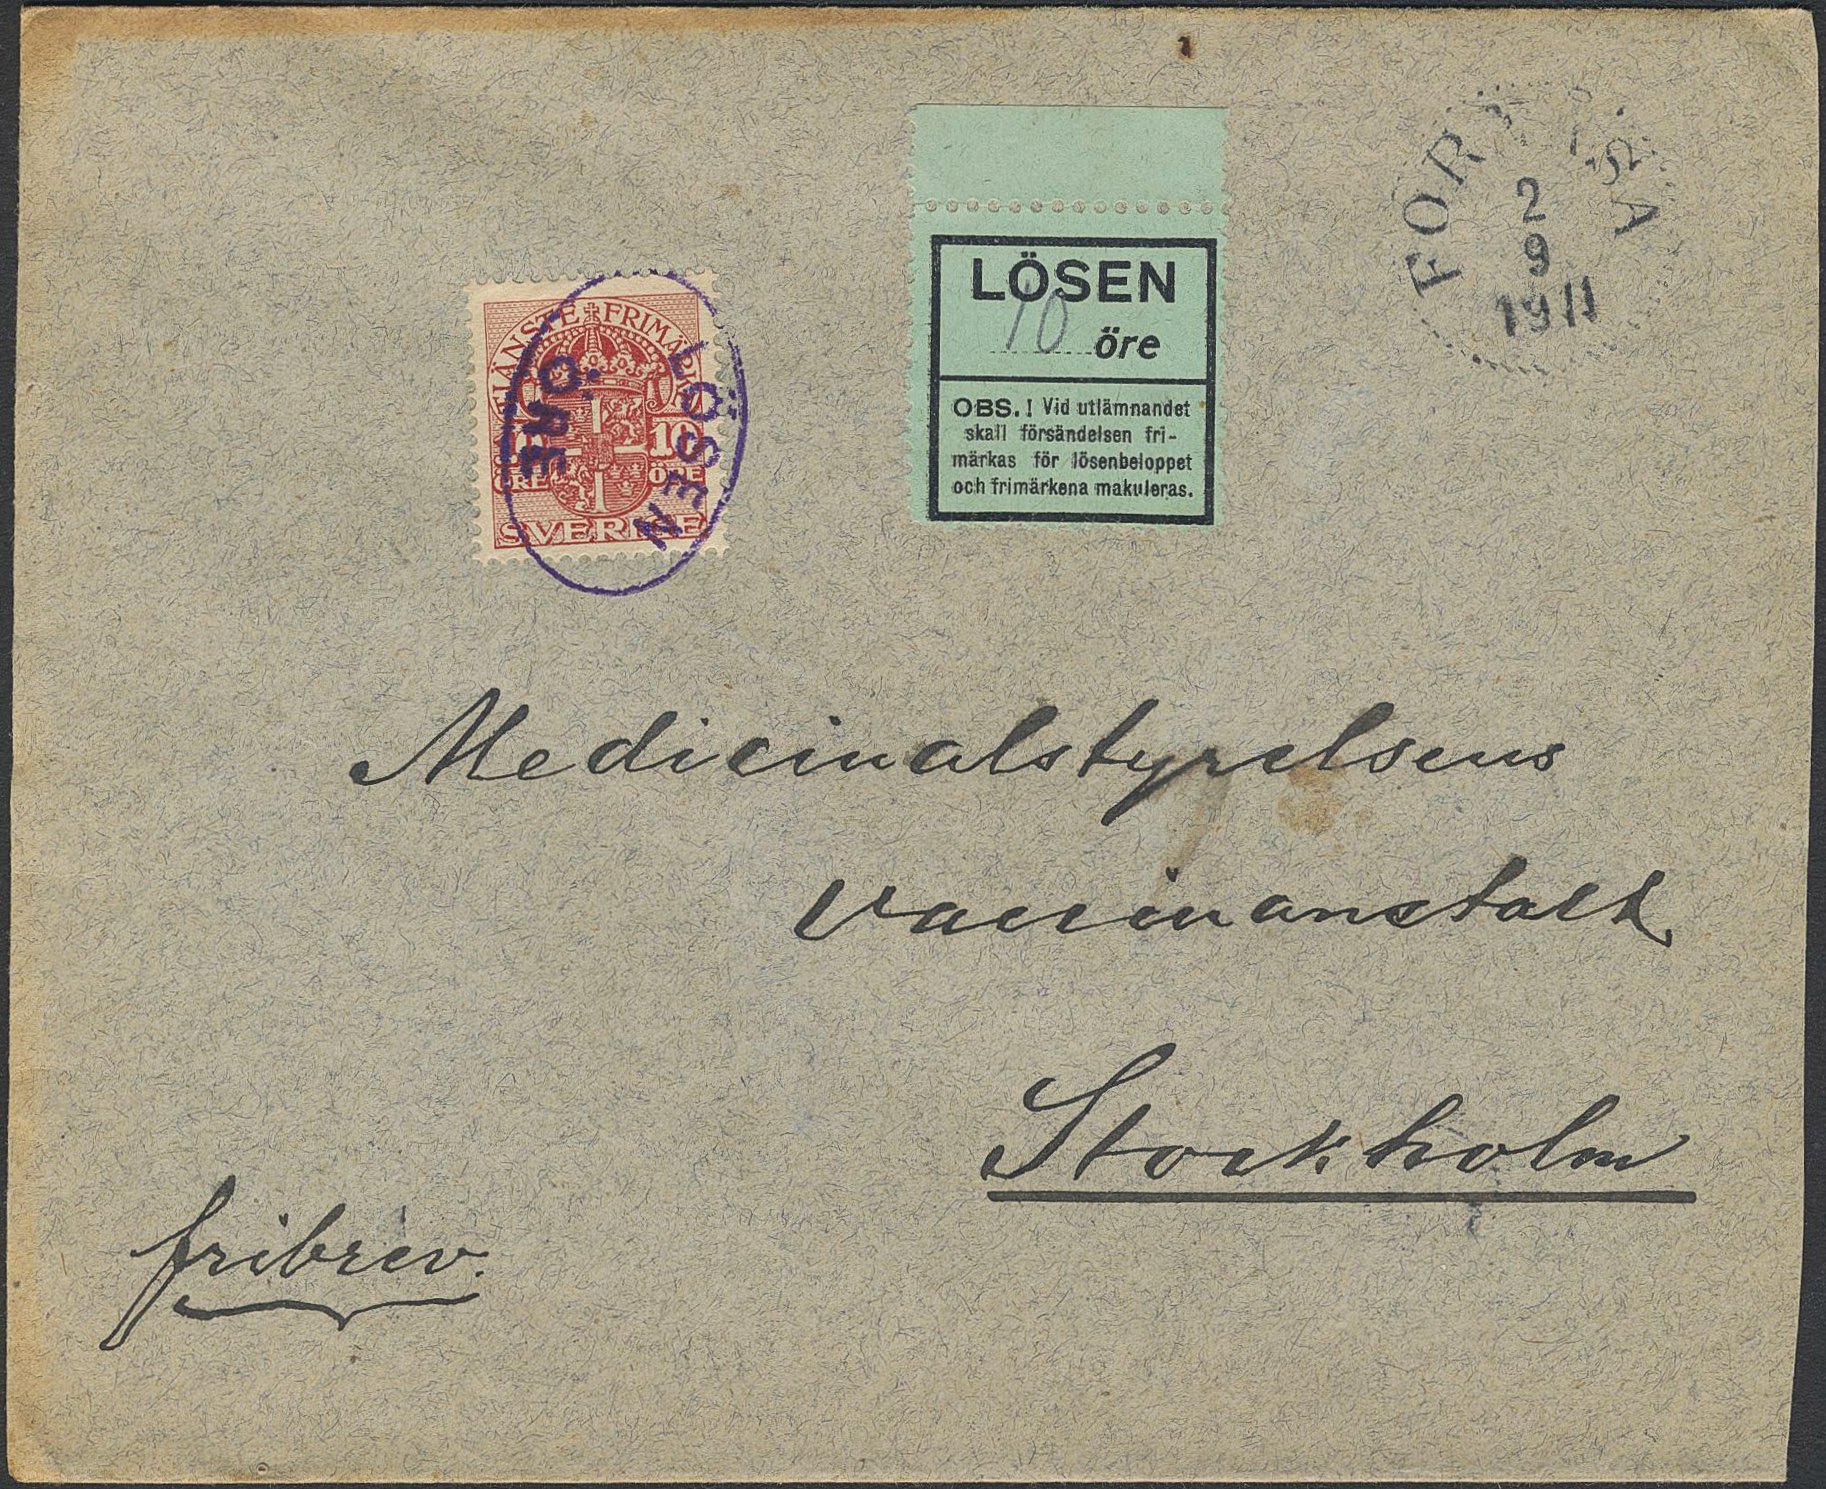 TJÄNSTE FRIMÄRKE
10 10
ÖRE ÖRE
SVERIGE
LÖSEN
ÖRE
LÖSEN
10 öre
OBS.! Vid utlämnandet
skall försändelsen fri-
märkas för lösenbeloppet
och frimärkena makuleras.
2
9
1911
Medicinalstyrelsens
Vaccinanstalt
Stockholm
fribrev.